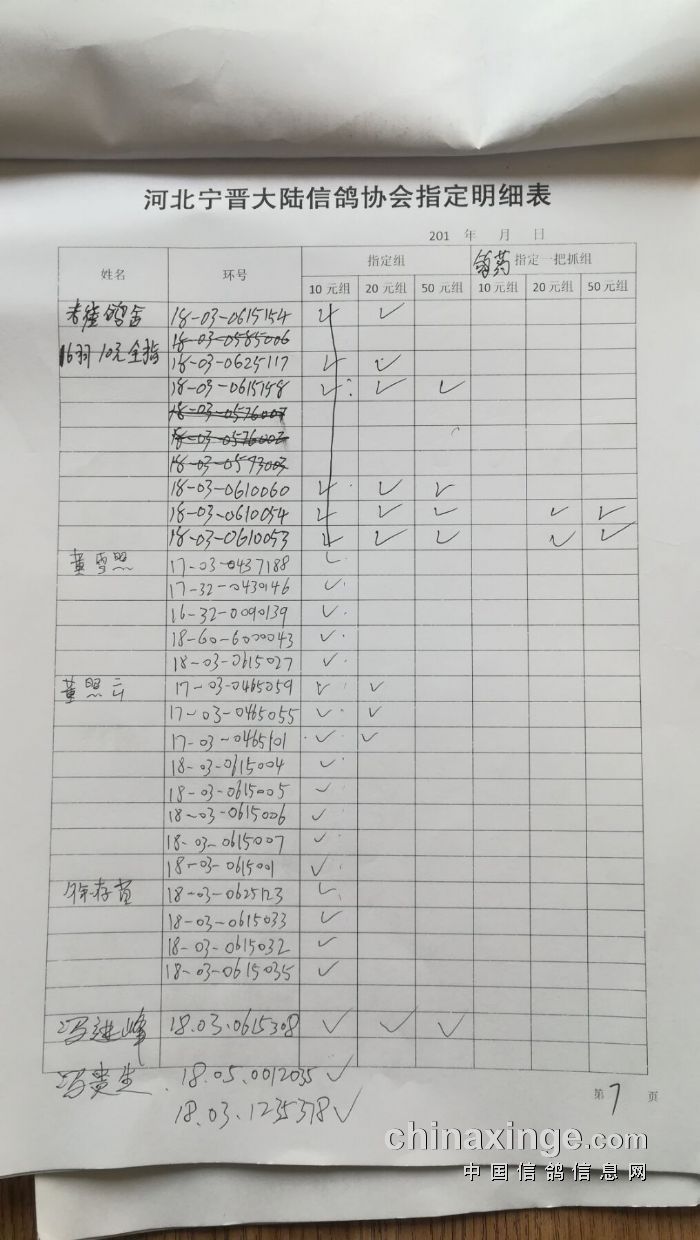 河北宁晋大陆信鸽协会指定明细表
201 年 月 日
姓名 环号 指定组 指定一把抓组
10元组 20元组 50元组 10元组 20元组 50元组
18-03-0615154 ✓ ✓
16羽10元全指 18-03-0585006
18-03-0625117 ✓ ✓
18-03-0615198 ✓ ✓ ✓
18-03-0576007
18-03-0576002
18-03-0593003
18-03-0610060 ✓ ✓ ✓
18-03-0610054 ✓ ✓ ✓ ✓ ✓
18-03-0610053 ✓ ✓ ✓ ✓ ✓
17-03-0437188 ✓
17-32-0430146 ✓
16-32-0090139 ✓
18-60-6000043 ✓
18-03-0615027 ✓
17-03-0465059 ✓ ✓
17-03-0465055 ✓ ✓
17-03-0465101 ✓ ✓
18-03-0615004 ✓
18-03-0615005 ✓
18-03-0615006 ✓
18-03-0615007 ✓
18-03-0615001 ✓
18-03-0625123 ✓
18-03-0615033 ✓
18-03-0615032 ✓
18-03-0615035 ✓
冯进峰 18.03.0615308 ✓ ✓ ✓
冯贵生 18.05.0012035 ✓
18.03.1235378 ✓
第7页
chinaxinge.com
中国信鸽信息网